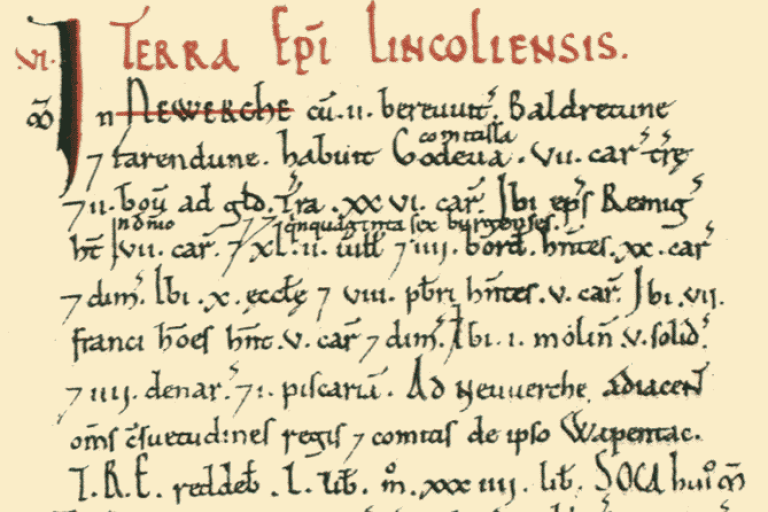 .VI. TERRA EP̄I LINCOLIENSIS.
M̄ In NEWERCHE cū .II. bereuuit'. Baldretune
⁊ farendune. habuit Godeua comitissa .VII. car' tr̄ę
⁊ II. boū ad gld̄. T'ra .XXVI. car'. Ibi ep̄s Remig'
ht̄ in dn̄io VII. car'. ⁊ qinquaginta sex burgenses. ⁊ XL.II. uill' ⁊ IIII. bord̄. hn̄tes .XX. car'
⁊ dim'. Ibi .X. ęcclę ⁊ VIII. pb̄ri hn̄tes .V. car'. Ibi .VII.
franci ho̅es hn̄t .V. car' ⁊ dim'. Ibi .I. molin̄ .V. solid'.
⁊ IIII. denar'. ⁊ I. piscariā. Ad Neuuerche adiacen̄t
om̄s c̄suetudines regis ⁊ comitis de ipso Wapentac.
T.R.E. reddeb̄ .L. lib̄. m̊. XXXIIII. lib̄. SOCA hui' M̄